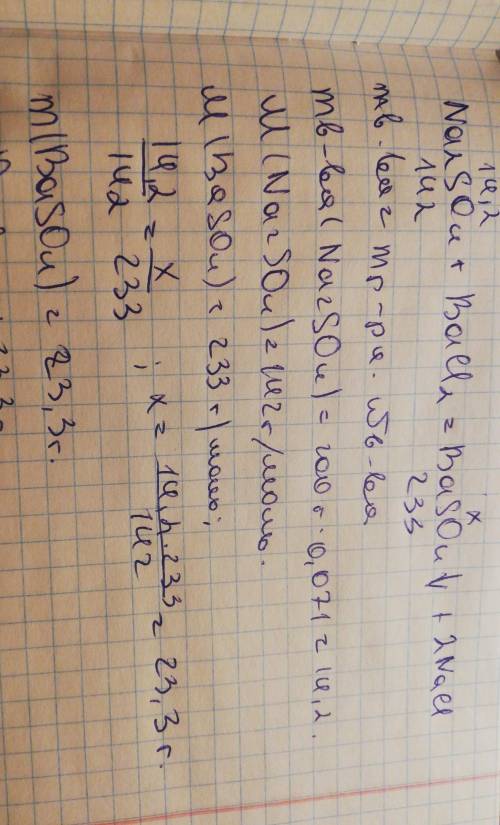 14,2 x
Na₂SO₄ + BaCl₂ = BaSO₄↓ + 2NaCl
142 233
mв-ва = mр-ра · ωв-ва
mв-ва (Na₂SO₄) = 200 г · 0,071 = 14,2.
M (Na₂SO₄) = 142 г/моль.
M (BaSO₄) = 233 г/моль;
14,2/142 = x/233 ; x = 14,2·233/142 = 23,3 г.
m(BaSO₄) = 23,3 г.